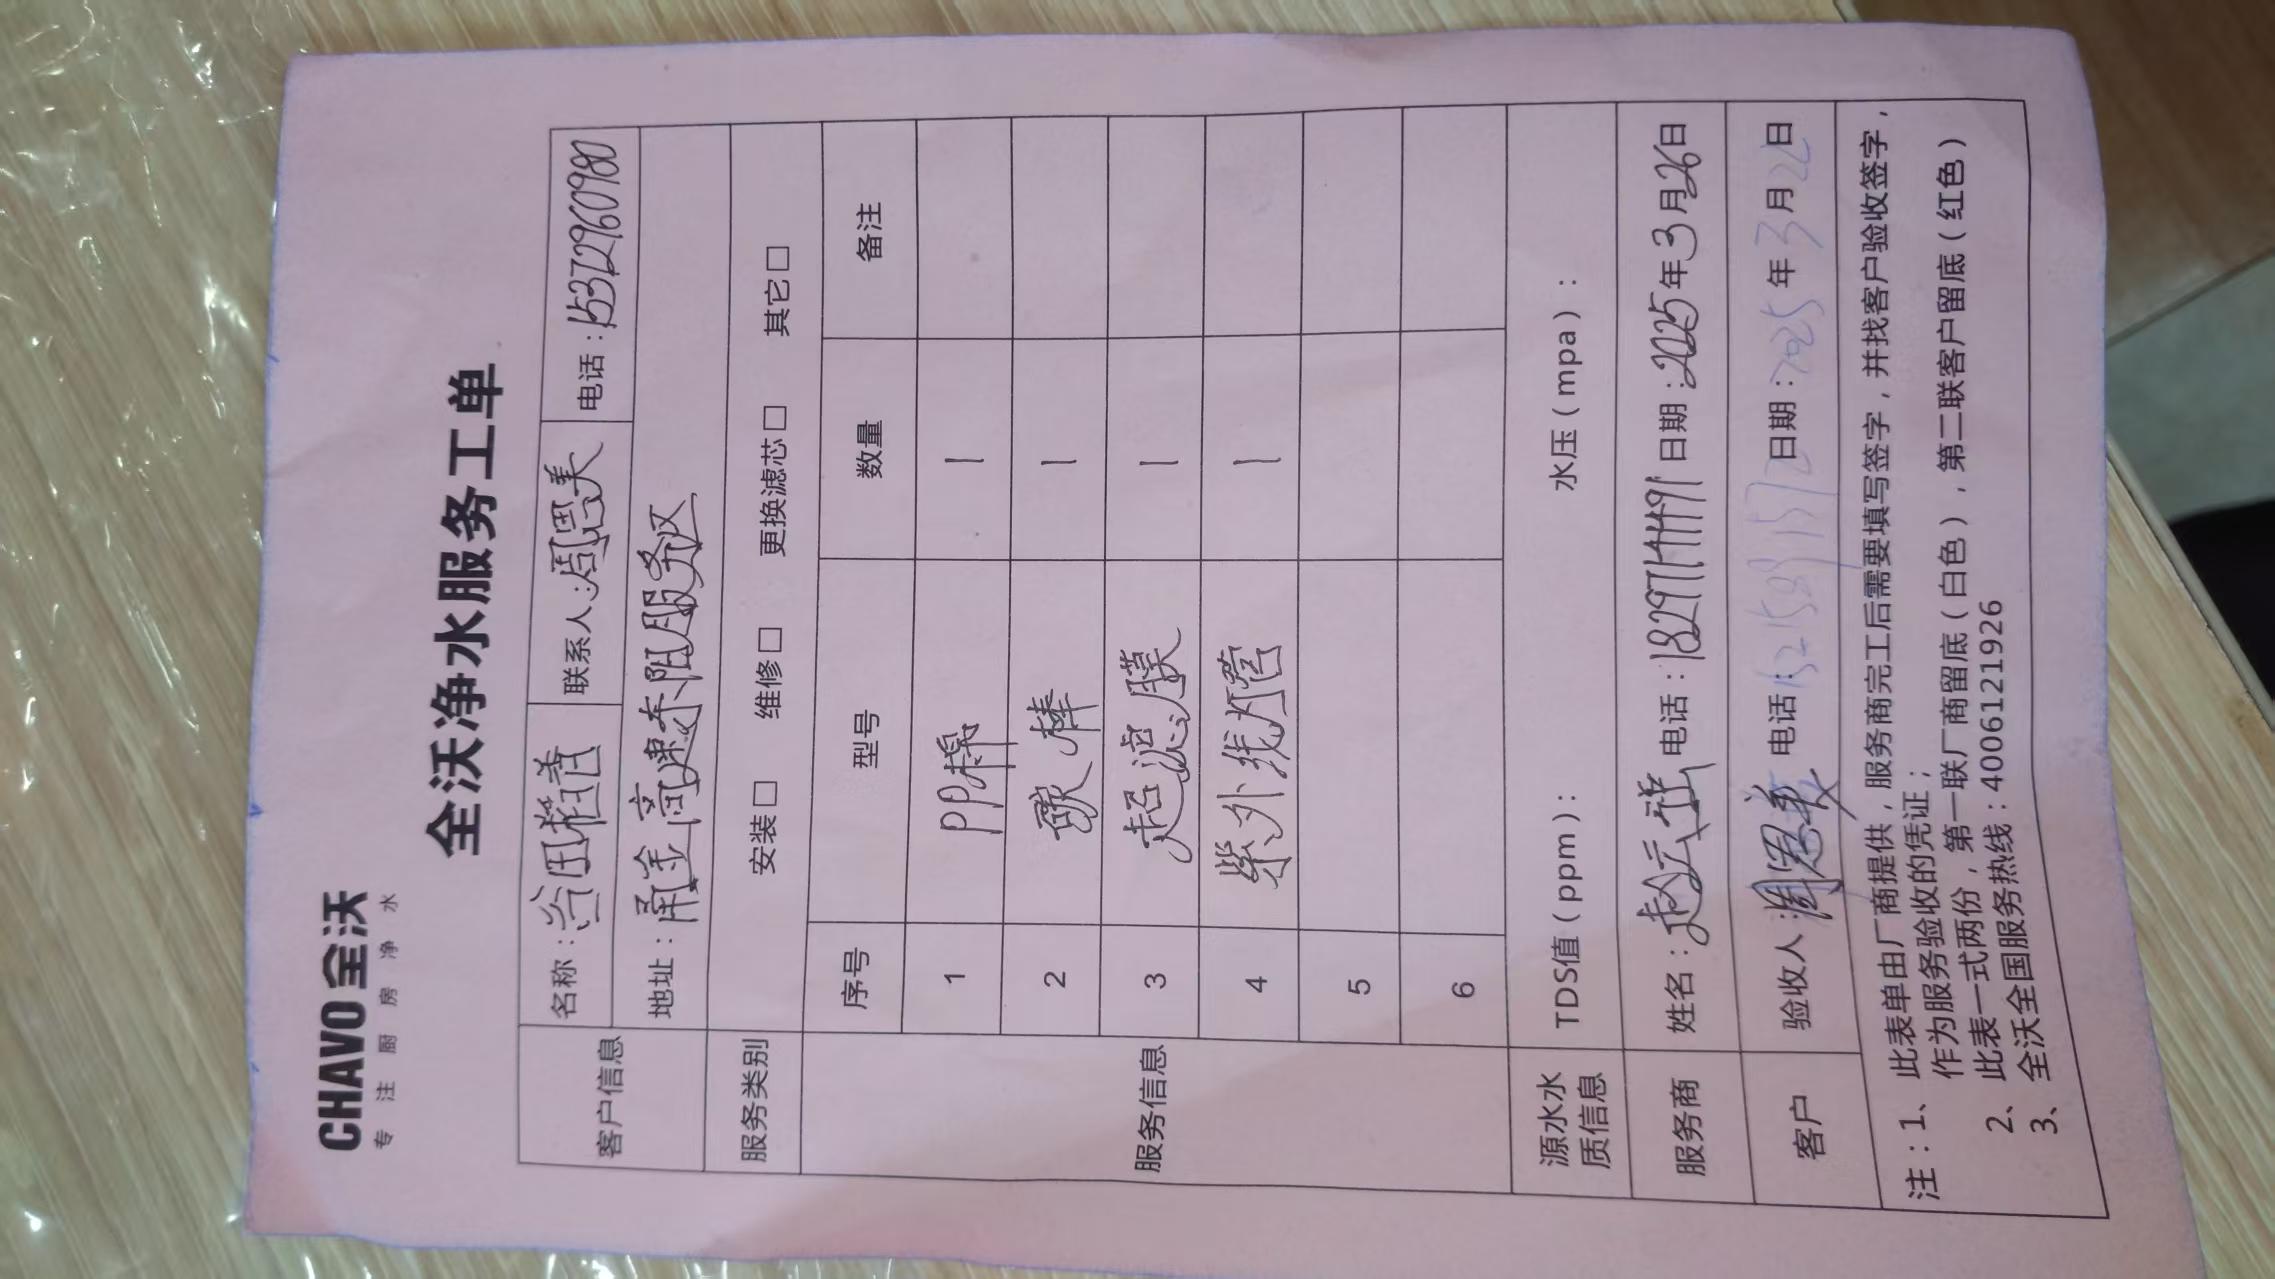 CHAVO 全沃
专注厨房净水
全沃净水服务工单
客户信息
名称：谷田稽善 联系人：周思美 电话：15372960980
地址：甬金高速东阳服务区
服务类别 安装□ 维修□ 更换滤芯□ 其它□
服务信息
序号 型号 数量 备注
1 PP棉 1
2 碳棒 1
3 超滤膜 1
4 紫外线灯管 1
5
6
源水水质信息 TDS值（ppm）： 水压（mpa）：
服务商 姓名：赵云祥 电话： 日期：2025年3月26日
客户 验收人：周思美 电话： 日期：2025年3月
注：1、此表单由厂商提供，服务商完工后需要填写签字，并找客户验收签字，
作为服务验收的凭证；
2、此表一式两份，第一联厂商留底（白色），第二联客户留底（红色）
3、全沃全国服务热线：4006121926